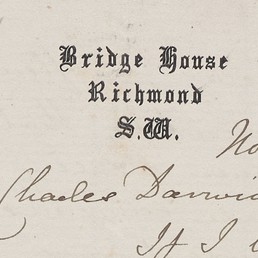 Bridge House
Richmond
S.W.
No
Charles Darwi
If I